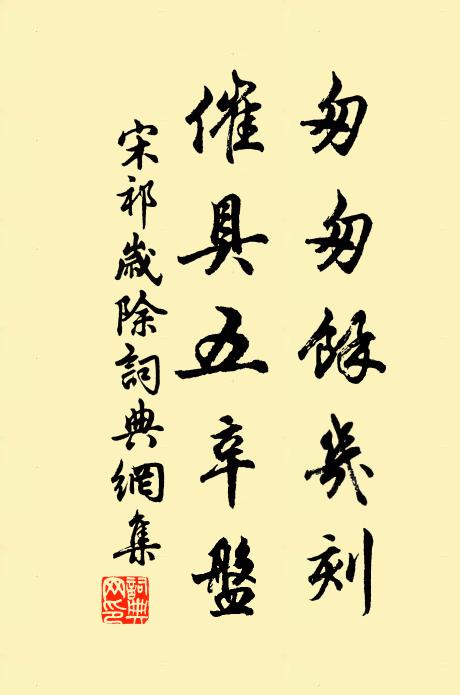 匆匆餘幾刻
催具五辛盤
宋祁歲除詞典網集
詞典網印